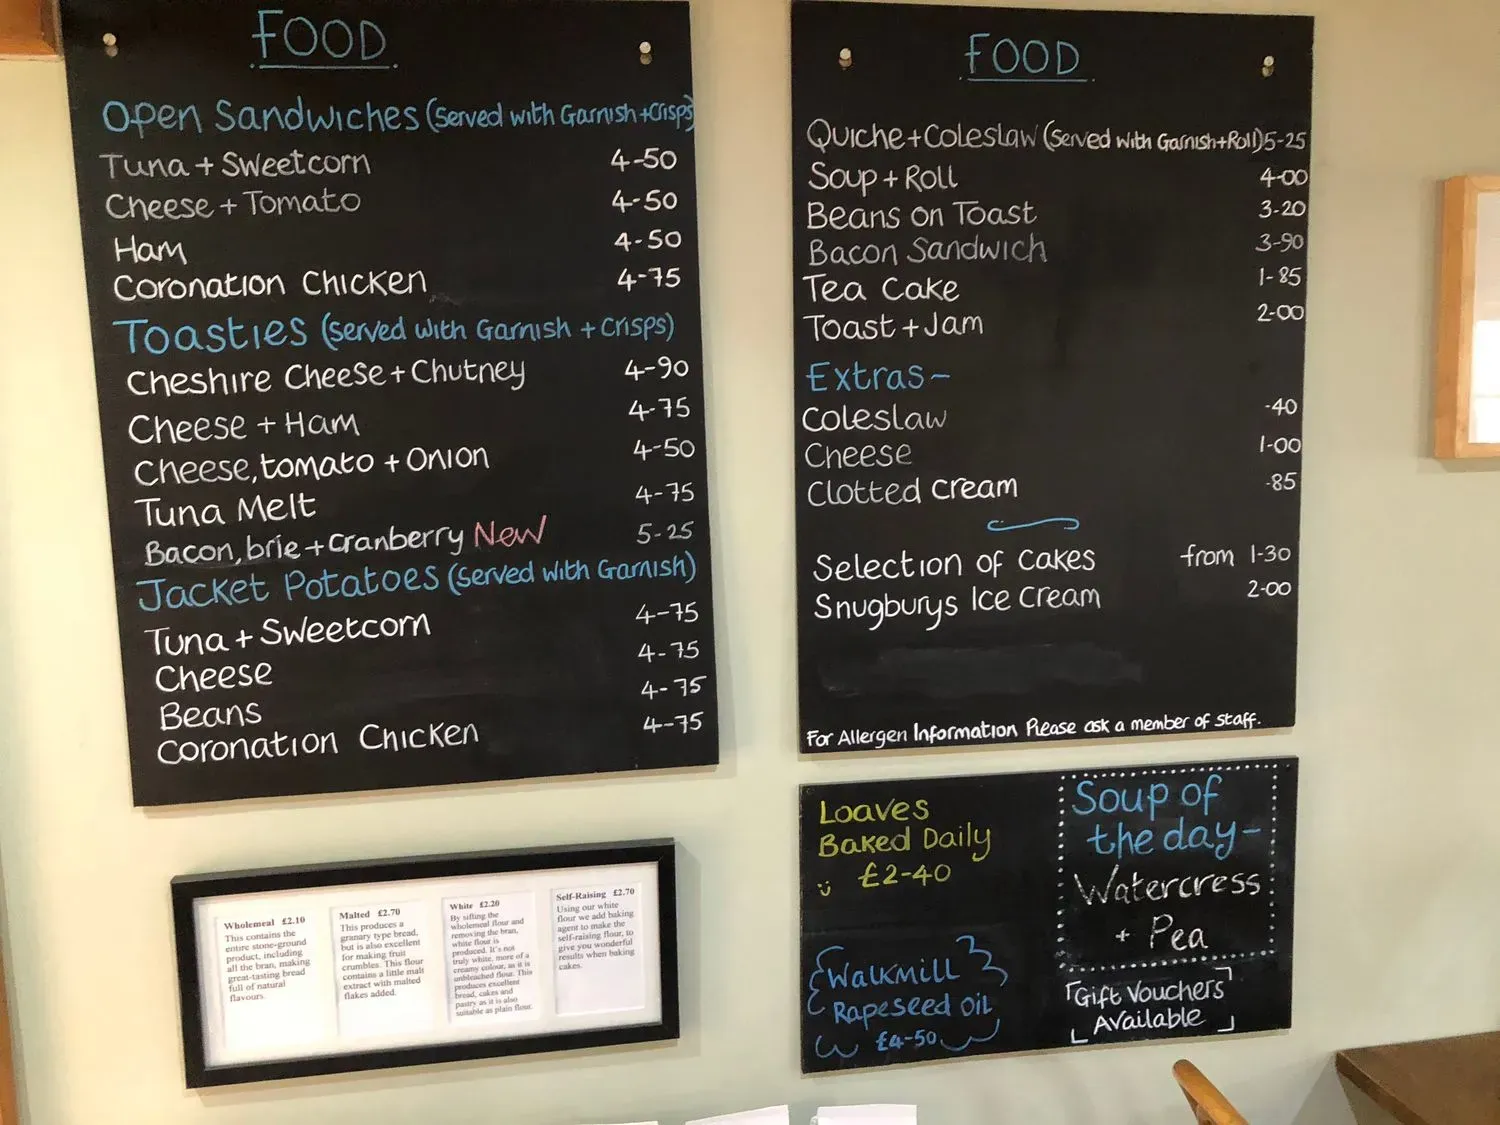 FOOD
Open Sandwiches (Served with Garnish + Crisps)
Tuna + Sweetcorn 4-50
Cheese + Tomato 4-50
Ham 4-50
Coronation Chicken 4-75
Toasties (Served with Garnish + Crisps)
Cheshire Cheese + Chutney 4-90
Cheese + Ham 4-75
Cheese, tomato + Onion 4-50
Tuna Melt 4-75
Bacon, brie + Cranberry New 5-25
Jacket Potatoes (Served with Garnish)
Tuna + Sweetcorn 4-75
Cheese 4-75
Beans 4-75
Coronation Chicken 4-75
FOOD
Quiche + Coleslaw (Served with Garnish + Roll) 5-25
Soup + Roll 4-00
Beans on Toast 3-20
Bacon Sandwich 3-90
Tea Cake 1-85
Toast + Jam 2-00
Extras ~
Coleslaw -40
Cheese 1-00
Clotted Cream -85
Selection of Cakes from 1-30
Snugburys Ice Cream 2-00
For Allergen Information Please ask a member of staff.
Loaves
Baked Daily
£2-40
Walkmill
Rapeseed Oil
£4-50
Soup of
the day ~
Watercress
+ Pea
Gift Vouchers
Available
Wholemeal £2.10
This contains the
entire stone-ground
product, including
all the bran, making
great-tasting bread
full of natural
flavours.
Malted £2.70
This produces a
granary type bread,
but is also excellent
for making fruit
crumbles. This flour
contains a little malt
extract with malted
flakes added.
White £2.20
By sifting the
wholemeal flour and
removing the bran,
white flour is
produced. It's not
truly white, more of a
creamy colour, as it is
unbleached flour. This
produces excellent
bread, cakes and
pastry as it is also
suitable as plain flour.
Self-Raising £2.70
Using our white
flour we add baking
agent to make the
self-raising flour, to
give you wonderful
results when baking
cakes.